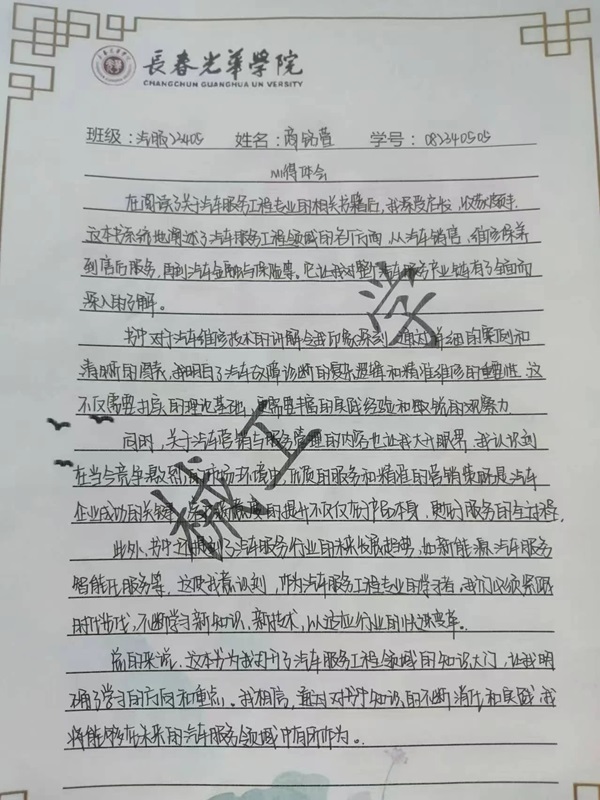 長春光華學院
CHANGCHUN GUANGHUA UN VERSITY
班级：汽服23405 姓名：商铭萱 学号：082340505
心得体会
在阅读了关于汽车服务工程专业的相关书籍后，我深受启发，收获颇丰。
这本书系统地阐述了汽车服务工程领域的各个方面，从汽车销售、维修保养
到售后服务，再到汽车金融与保险等。它让我对整个汽车服务产业链有了全面而
深入的了解。
书中对于汽车维修技术的讲解令我印象深刻，通过详细的案例和
清晰的图表，我明白了汽车故障诊断的复杂逻辑和精准维修的重要性。这
不仅需要扎实的理论基础，更需要丰富的实践经验和敏锐的观察力
同时，关于汽车营销与服务管理的内容也让我大开眼界。我认识到
在当今竞争激烈的市场环境中，优质的服务和精准的营销策略是汽车
企业成功的关键。客户满意度的提升不仅仅在于产品本身，更在于服务的全过程。
此外，书中还提到了汽车服务行业的未来发展趋势，如新能源汽车服务
智能化服务等。这使我意识到，作为汽车服务工程专业的学习者，我们必须紧跟
时代步伐，不断学习新知识、新技术，以适应行业的快速变革。
总的来说，这本书为我打开了汽车服务工程领域的知识大门，让我明
确了学习的方向和重点。我相信，通过对书中知识的不断消化和实践，我
将能够在未来的汽车服务领域中有所作为。
械工学